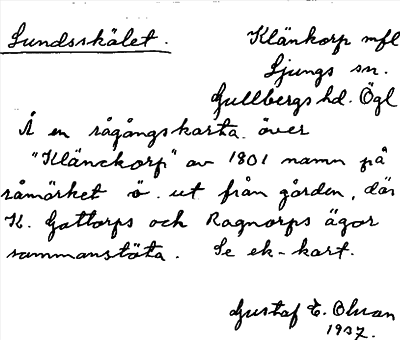 Sundsskälet.
Klänkorp mfl
Ljungs sn.
Gullbergs hd. Ögl
Å en rågångskarta över
"Klänckorp" av 1801 namn på
råmärket ö. ut från gården, där
K. Gattorps och Ragnorps ägor
sammanstöta. Se ek-kart.
Gustaf E. Olsson
1937.